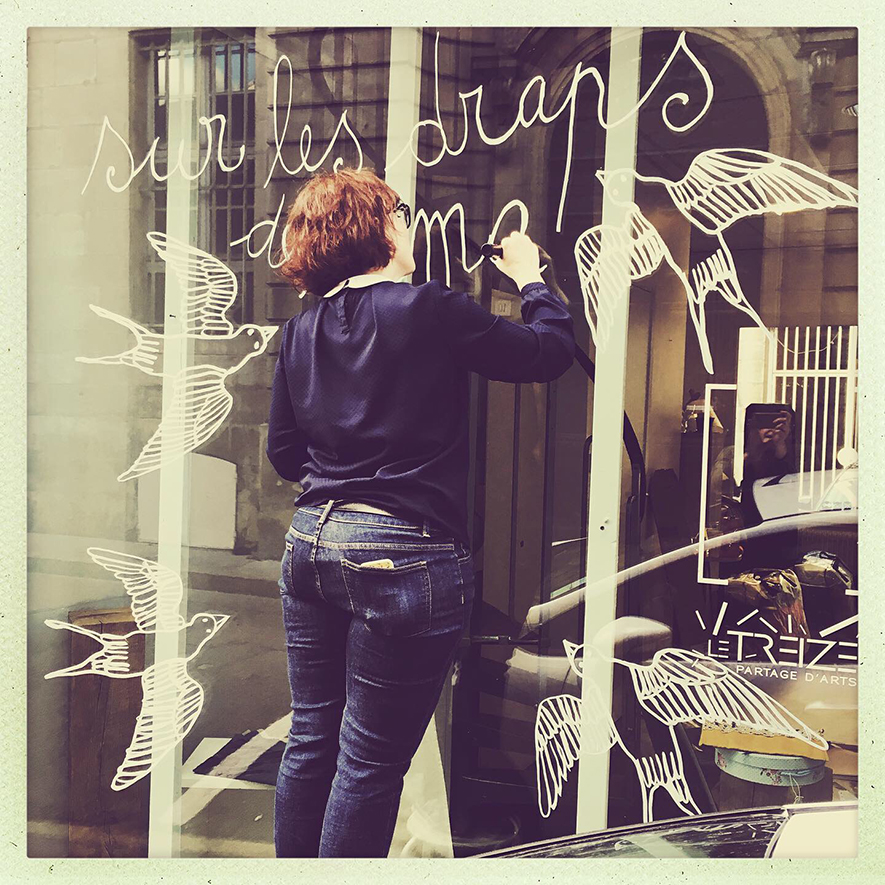 sur les draps
LE TREIZE
PARTAGE D'ARTS